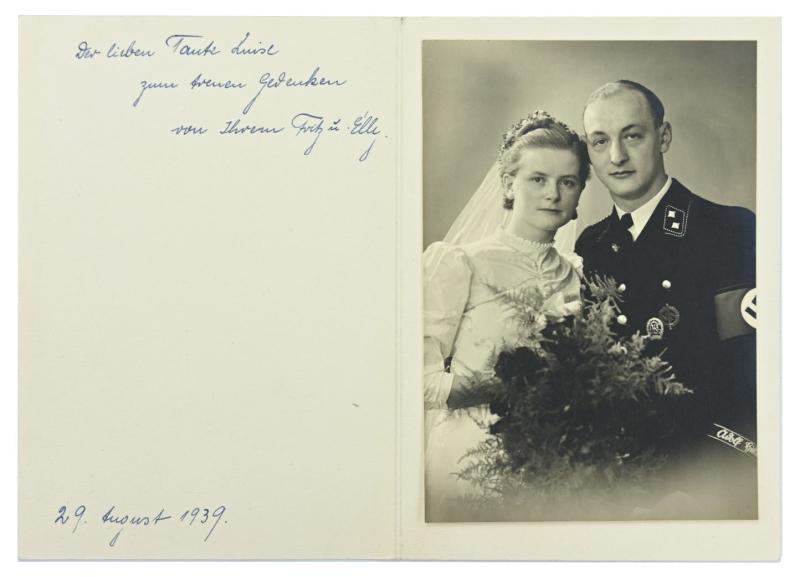 Der lieben Tante Luise
zum treuen Gedenken
von Ihrem Fritz u. Elly.
29. August 1939.
Adolf